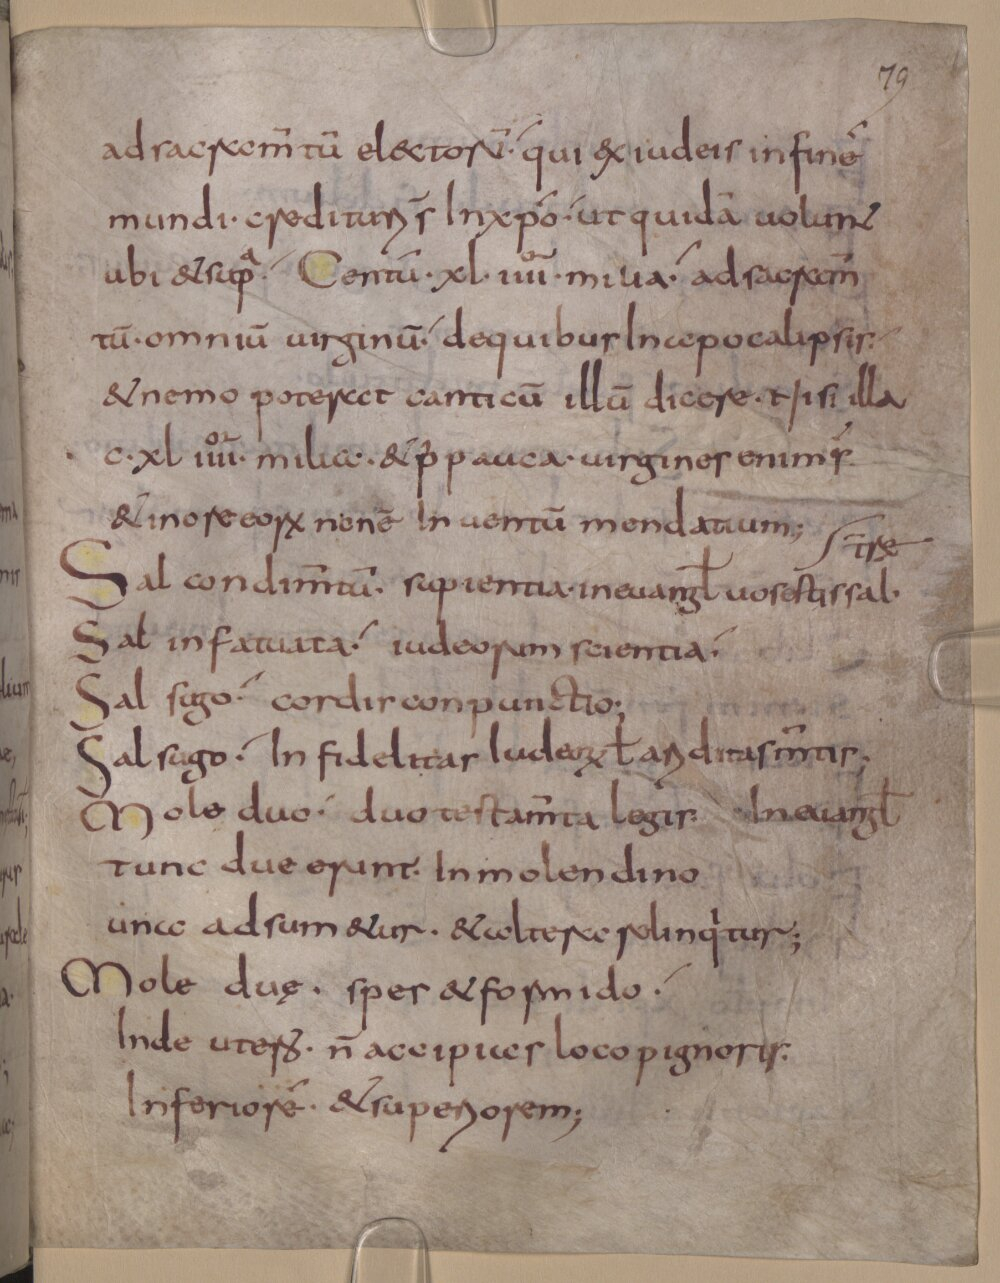 79
ad sacram̄tū electorū· qui ex iudeis infinē
mundi· credituri s̄ In xp̄o· ut quidā uolunt
ubi & sup̄a· Centū· xl· iiii· milia· ad sacram̄
tū· omniū uirginū· de quibus In apocalipsis·
& nemo poterat canticū illū dicere· nisi illa
c· xl iiii· milia· &p̄p auca· uirgines enim s̄·
& in ore eorum non ē Inuentū mendatium;
Sal condim̄tū· sapientia· in euangl uos estis sal· terre
Sal infatuata· iudeorum scientia·
Sal sugo· cordis conpunctio;
Sal sugo· Infidelitas Iudeorum ł ariditas m̄tis;
Mole duo· duo testam̄ta legis· In euangl
tunc due erunt· In molendino
una adsumetur· & altera relinq̄tur;
Mole duę· spes & formido·
Inde uteris· n̄ accipias loco pignoris·
Inferiorē· & superiorem;